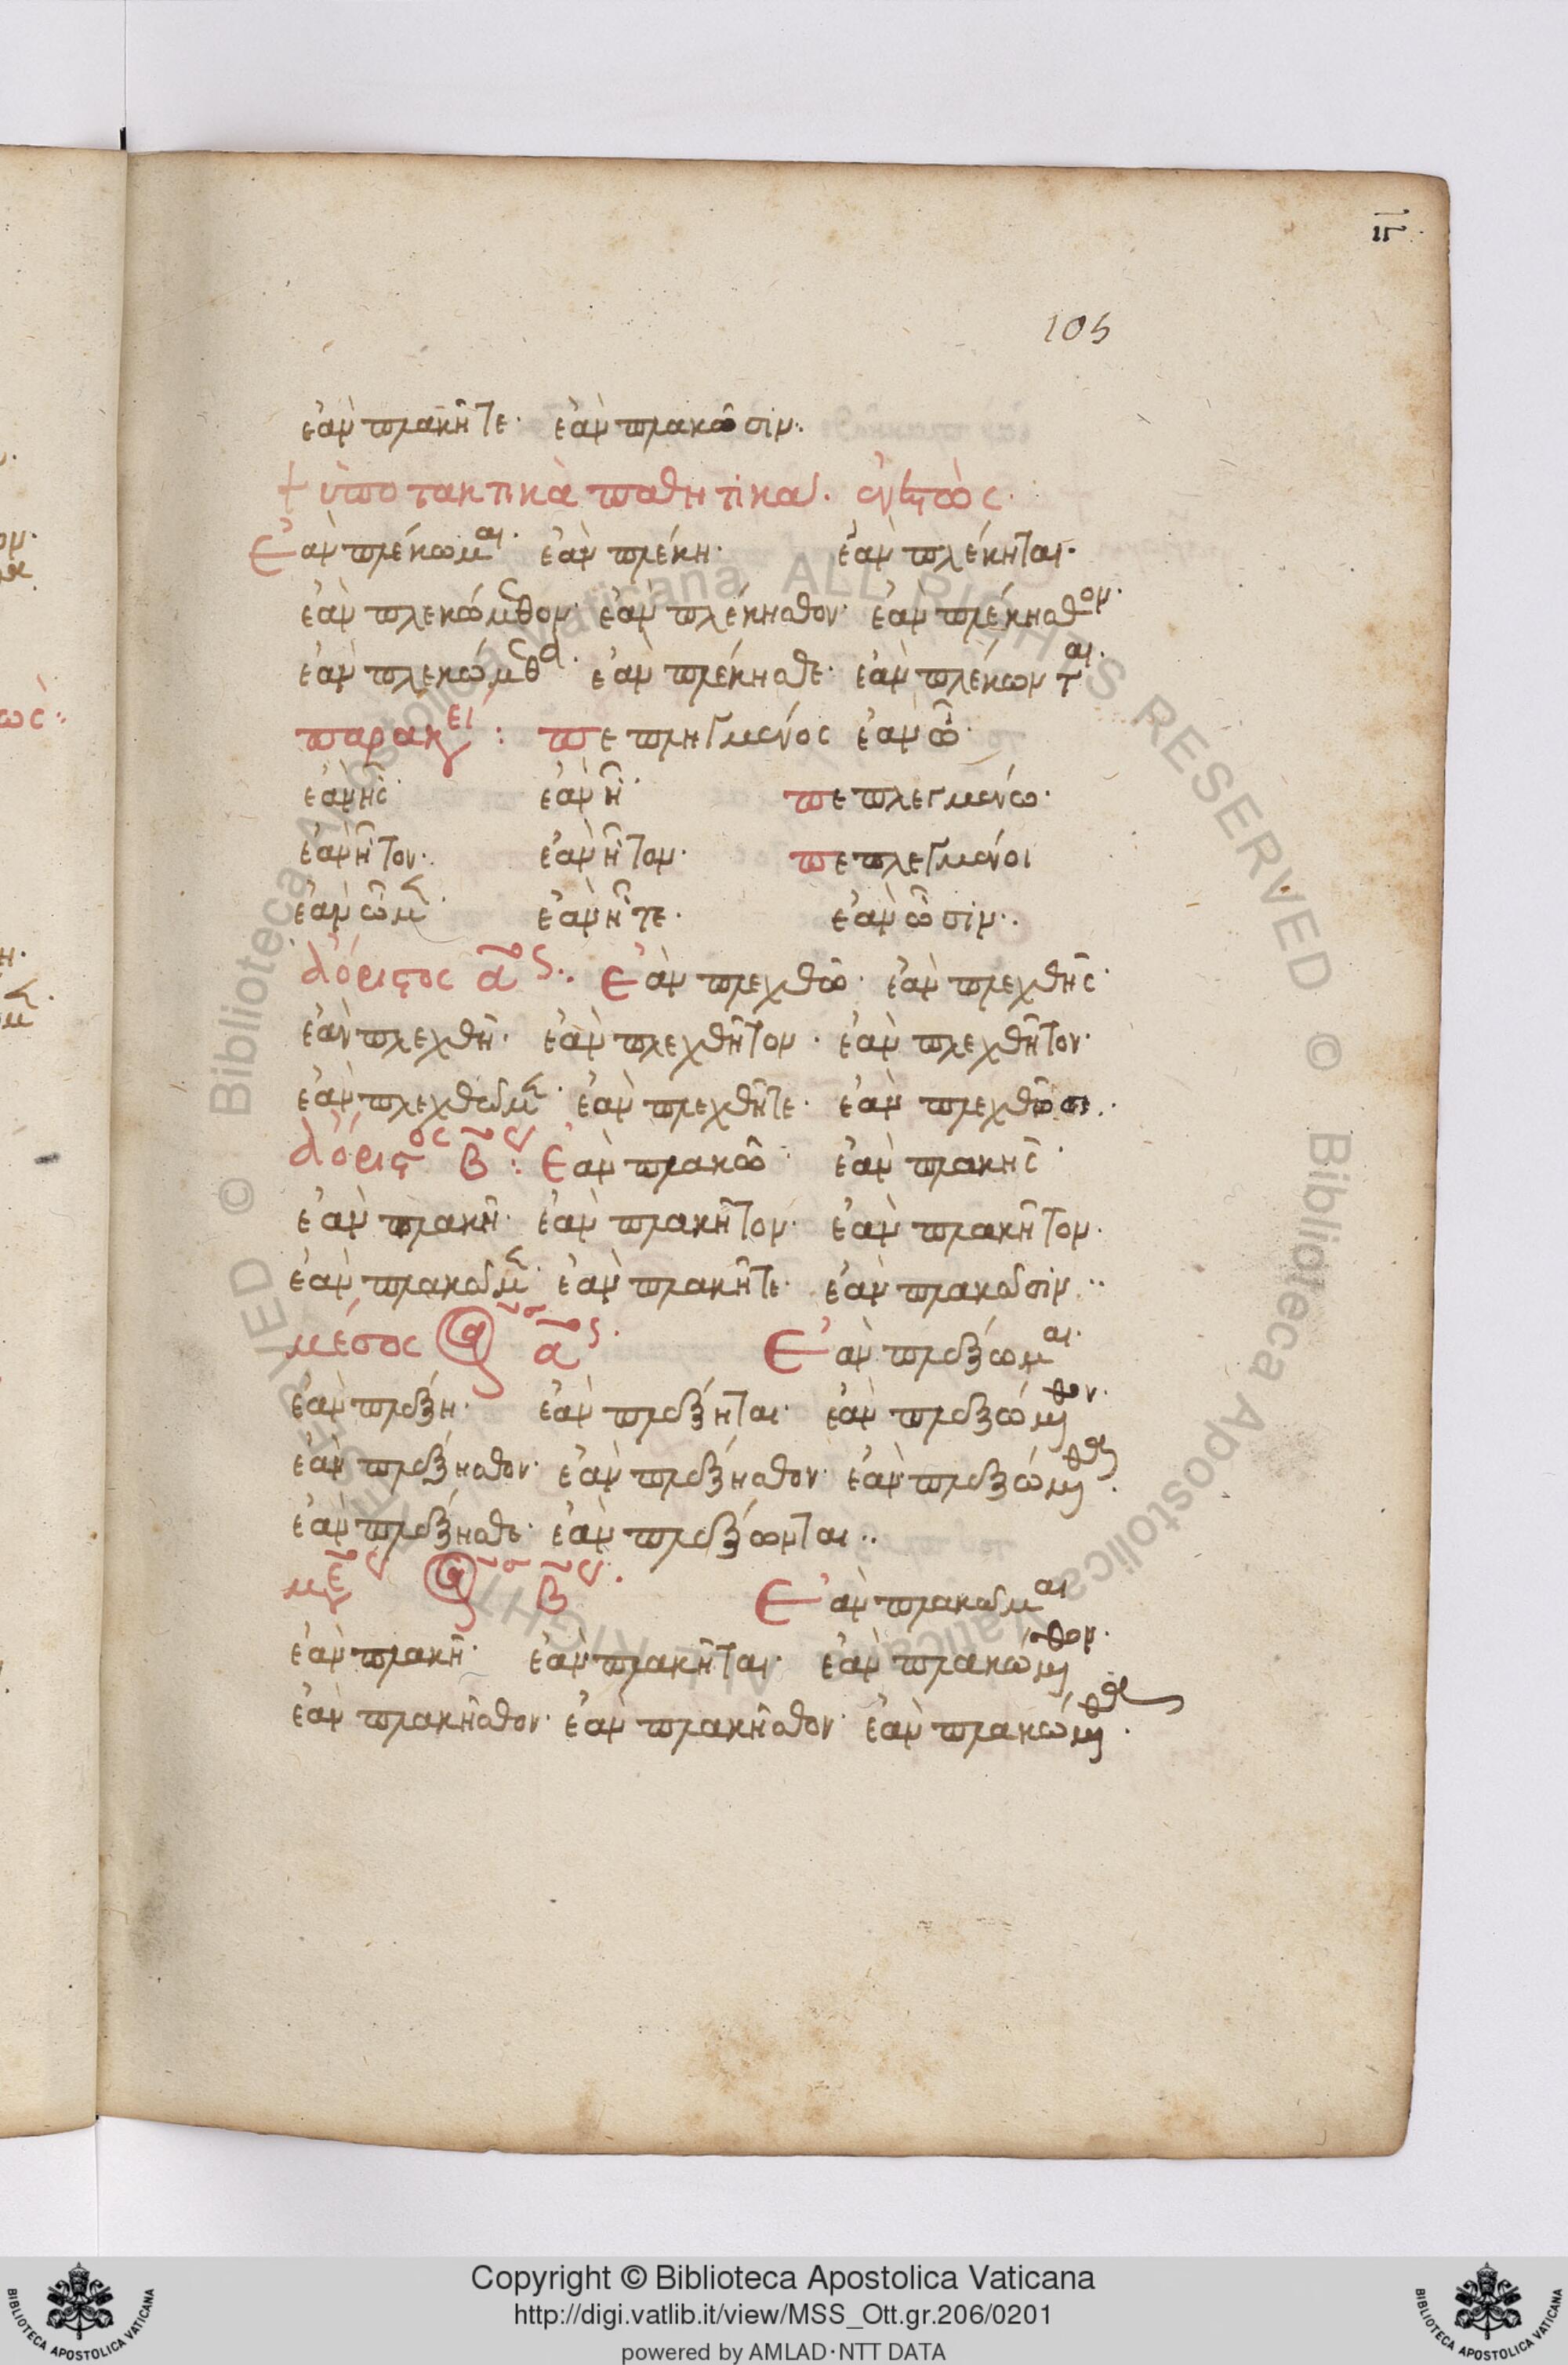 105
ἐὰν πλακῆτε· ἐὰν πλακῶσιν·
+ ὑποτακτικὰ παθητικά. ἐνεστώς·
Ἐὰν πλέκωμαι· ἐὰν πλέκη· ἐὰν πλέκηται·
ἐὰν πλεκώμεθον· ἐὰν πλέκησθον· ἐὰν πλέκησθον·
ἐὰν πλεκώμεθα· ἐὰν πλέκησθε· ἐὰν πλέκωνται·
παρακει: πεπληγμένος ἐὰν ὦ·
ἐὰν ῆς· ἐὰν ῆ· πεπλεγμένω·
ἐὰν ῆτον· ἐὰν ῆτον· πεπλεγμένοι
ἐὰν ὦμεν· ἐὰν ῆτε· ἐὰν ὦσιν·
ἀόριστος α^ος· Ἐὰν πλεχθῶ· ἐὰν πλεχθῆς·
ἐὰν πλεχθῆ· ἐὰν πλεχθῆτον· ἐὰν πλεχθῆτον·
ἐὰν πλεχθῶμεν· ἐὰν πλεχθῆτε· ἐὰν πλεχθῶσι·
ἀόριστος β^ος: Ἐὰν πλακῶ· ἐὰν πλακῆς·
ἐὰν πλακῆ· ἐὰν πλακῆτον· ἐὰν πλακῆτον·
ἐὰν πλακῶμεν· ἐὰν πλακῆτε· ἐὰν πλακῶσιν··
μέσος α^ος· Ἐὰν πλέξωμαι·
ἐὰν πλέξη· ἐὰν πλέξηται· ἐὰν πλεξώμεθον·
ἐὰν πλέξησθον· ἐὰν πλέξησθον· ἐὰν πλεξώμεθα·
ἐὰν πλέξησθε· ἐὰν πλέξωνται··
β^ος· Ἐὰν πλακῶμαι
ἐὰν πλακῆ· ἐὰν πλακῆται· ἐὰν πλακώμεθον·
ἐὰν πλακῆσθον· ἐὰν πλακῆσθον· ἐὰν πλακώμεθα·
© Biblioteca Apostolica Vaticana ALL RIGHTS RESERVED
Copyright © Biblioteca Apostolica Vaticana
http://digi.vatlib.it/view/MSS_Ott.gr.206/0201
powered by AMLAD·NTT DATA
BIBLIOTECA APOSTOLICA VATICANA
BIBLIOTECA APOSTOLICA VATICANA